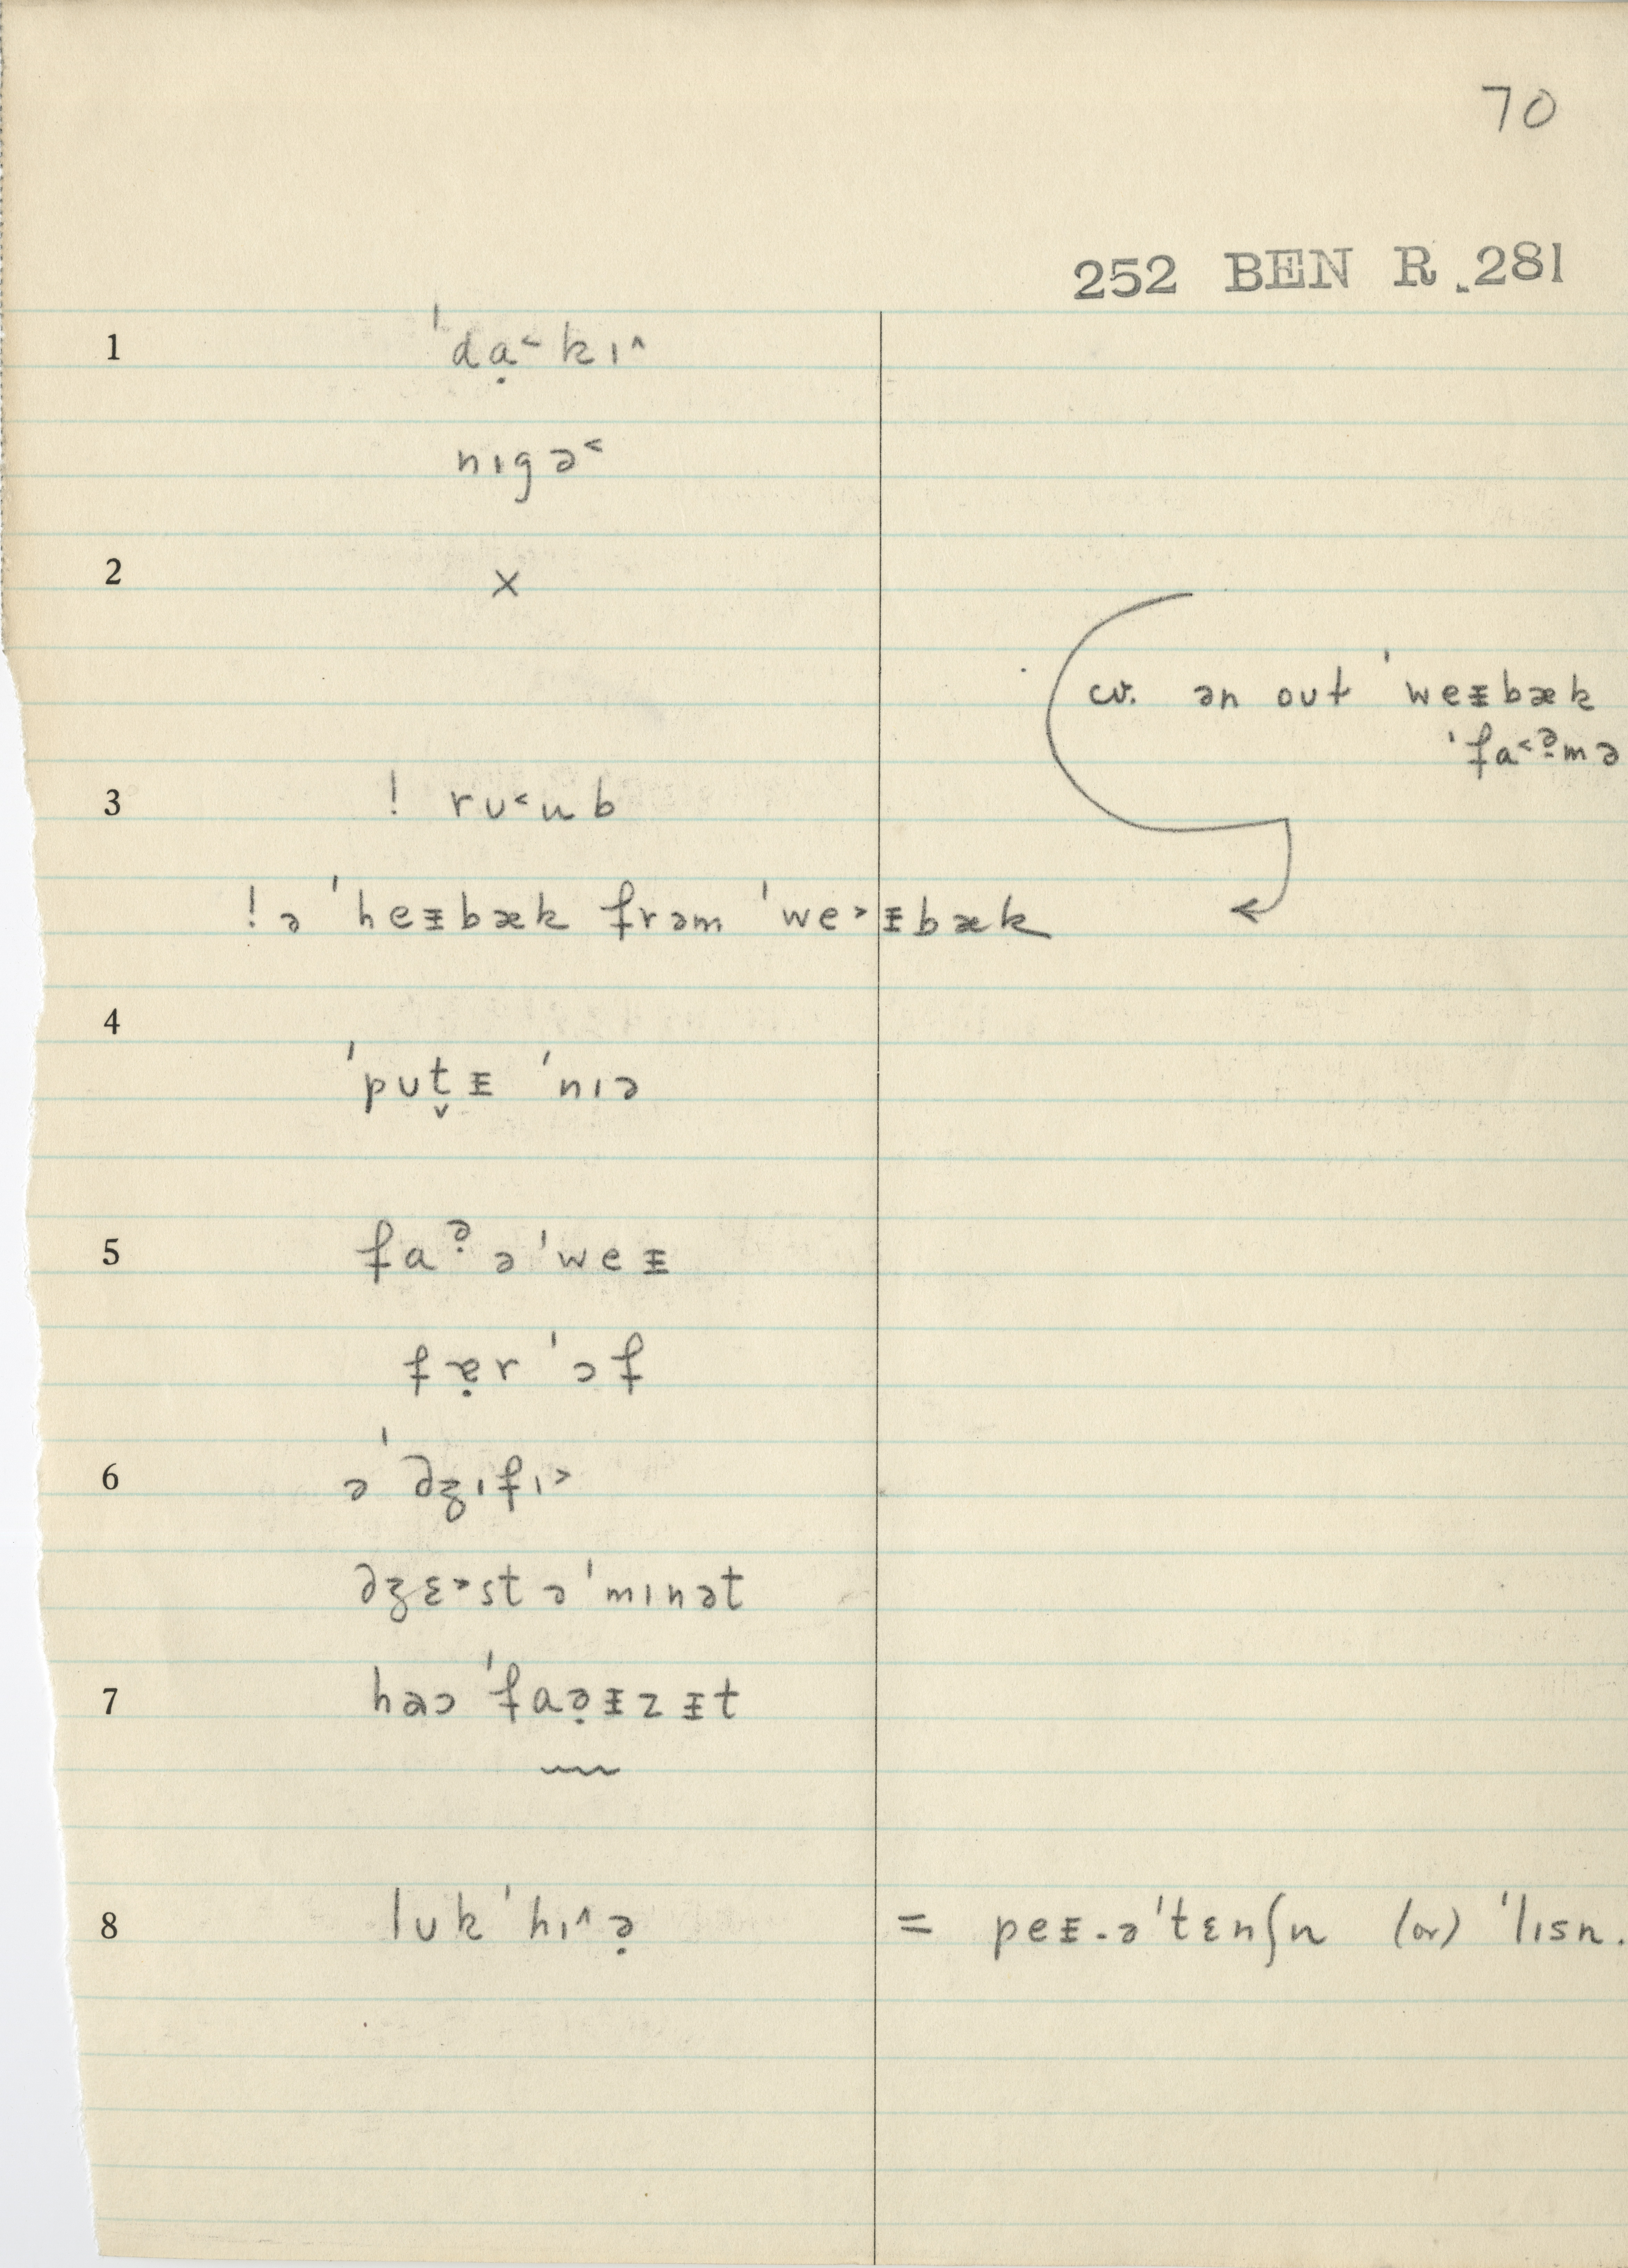 70
252 BEN R. 281
1 ˈdạ˂kɪ˄
nɪgə˂
2 x
cv. ən out ˈweᵻbæk
ˈfa˂ə̣mə
3 ! rʊ˂ub
! ə ˈheᵻbæk frəm ˈwe˃ᵻbæk
4 ˈpʊt̬ᵻ ˈnɪə
5 faə̣ əˈweᵻ
fɐ̣r ˈɔf
6 ə ˈdʒɪfɪ˃
dʒɛ˃st əˈmɪnət
7 hɐɔ ˈfaə̣ᵻzᵻt
8 lʊk ˈhɪ˄ə̣ = peᵻ-əˈtɛnʃn (or) ˈlɪsn.